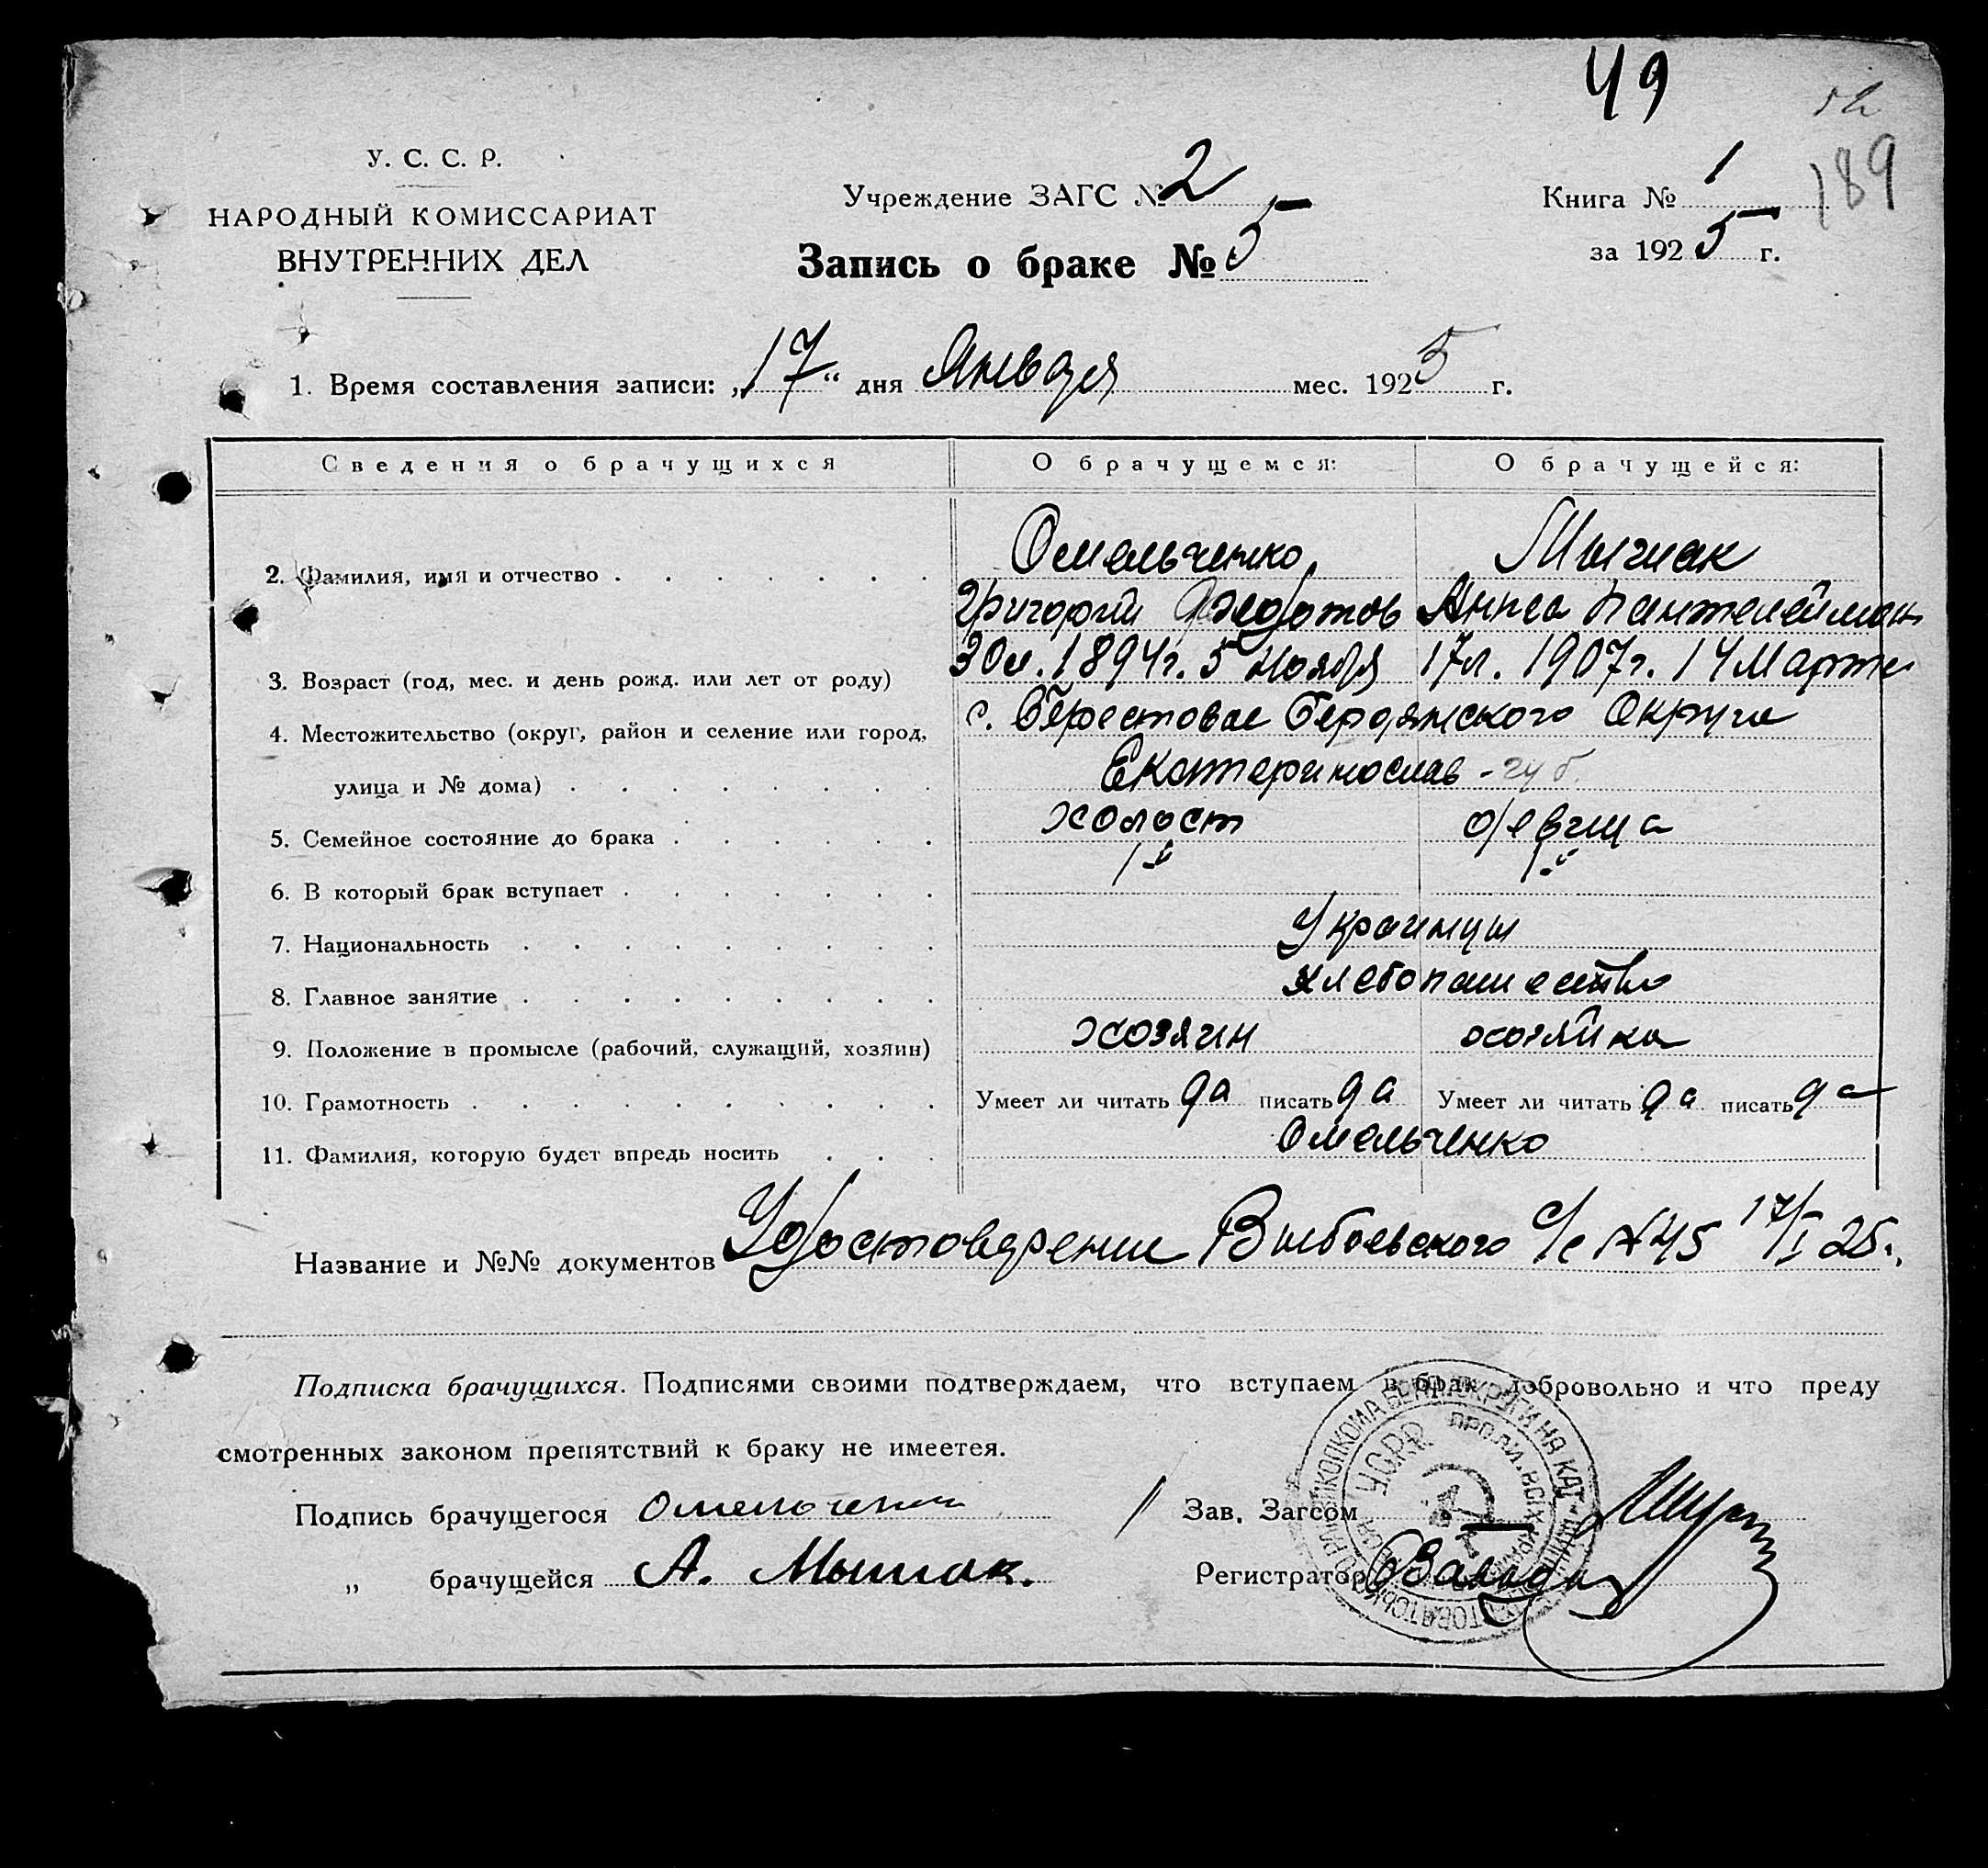 49
189
У. С. С. Р.
НАРОДНЫЙ КОМИССАРИАТ
ВНУТРЕННИХ ДЕЛ
Учреждение ЗАГС № 2
Запись о браке № 5
Книга № 1
за 1925 г.
1. Время составления записи: „17“ дня Января мес. 1925 г.
Сведения о брачущихся О брачущемся: О брачущейся:
2. Фамилия, имя и отчество Омельченко Григорий Федотов
30 л. 1894 г. 5 Ноября 17 л. 1907 г. 14 Марта
3. Возраст (год, мес. и день рожд. или лет от роду)
с. Берестовое Бердянского Округа
4. Местожительство (округ, район и селение или город,
Екатеринослав - губ.
улица и № дома)
5. Семейное состояние до брака холост девица
6. В который брак вступает 1й 1й
7. Национальность Украинцы
8. Главное занятие хлебопашество
9. Положение в промысле (рабочий, служащий, хозяин) хозяин хозяйка
10. Грамотность Умеет ли читать да писать да Умеет ли читать да писать да
11. Фамилия, которую будет впредь носить Омельченко
Название и №№ документов Удостоверение с/с № 45 17/I 25 г.
Подписка брачущихся. Подписями своими подтверждаем, что вступаем в брак добровольно и что преду
смотренных законом препятствий к браку не имеетея.
Подпись брачущегося Омельченко Зав. Загсом
„ брачущейся А. Регистратор
УСРР